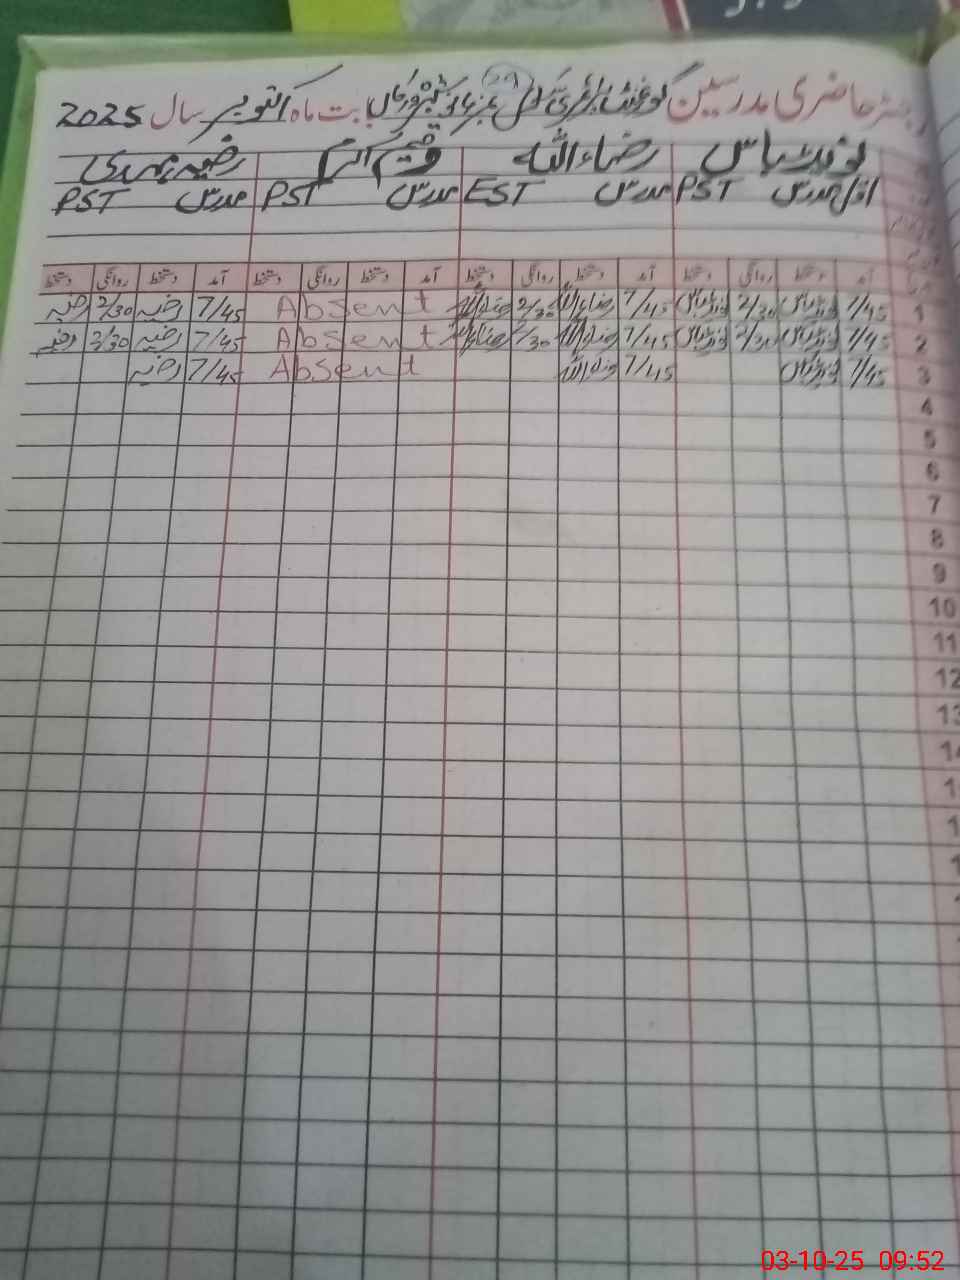 رجسٹر حاضری مدرسین گورنمنٹ پرائمری سکول بابت ماہ اکتوبر سال 2025
نوید عباس رضاء اللہ قسیم اکرم رضیہ مہدی
اول مدرس PST مدرس EST مدرس PST مدرس PST
آمد دستخط روانگی دستخط آمد دستخط روانگی دستخط آمد دستخط روانگی دستخط آمد دستخط روانگی دستخط
1 7/45 نوید عباس 2/30 نوید عباس 7/45 رضاء اللہ 2/30 رضاء اللہ Absent 7/45 رضیہ 2/30 رضیہ
2 7/45 نوید عباس 2/30 نوید عباس 7/45 رضاء اللہ 2/30 رضاء اللہ Absent 7/45 رضیہ 2/30 رضیہ
3 7/45 نوید عباس 7/45 رضاء اللہ Absent 7/45 رضیہ
4
5
6
7
8
9
10
11
12
13
03-10-25 09:52